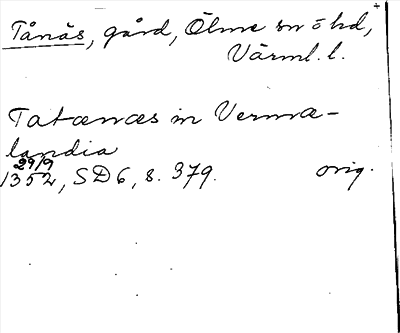 Tånäs, gård, Ölme sn o hd,
Värml. l.
Tatænæs in Verma-
landia
29/9
1352, SD 6, s. 379. orig.